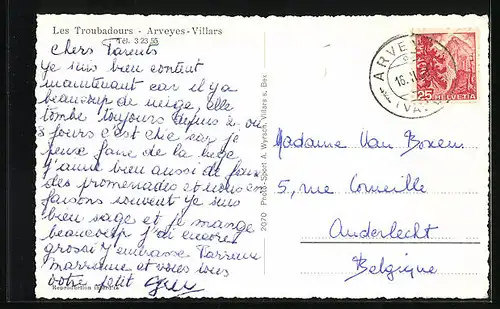 Les Troubadours - Arveyes-Villars
Tél. 3 23 55
Chers Parents
je suis bien content
maintenant car il y a
beaucoup de neige, elle
tombe toujours depuis 2 ou
3 jours c'est chic car je
peux faire de la luge
j'aime bien aussi de faire
des promenades et nous en
faisons souvent je suis
bien sage et je mange
beaucoup j'ai encore
grossi j'embrasse Parrain
Marraine et vous tous
votre petit
Reproduction interdite
2070 Photo-Sport A. Wyrsch, Villars s. Bex
ARVEYES
16.
(VAUD)
25
HELVETIA
Madame Van Boxem
5, rue Corneille
Anderlecht
Belgique